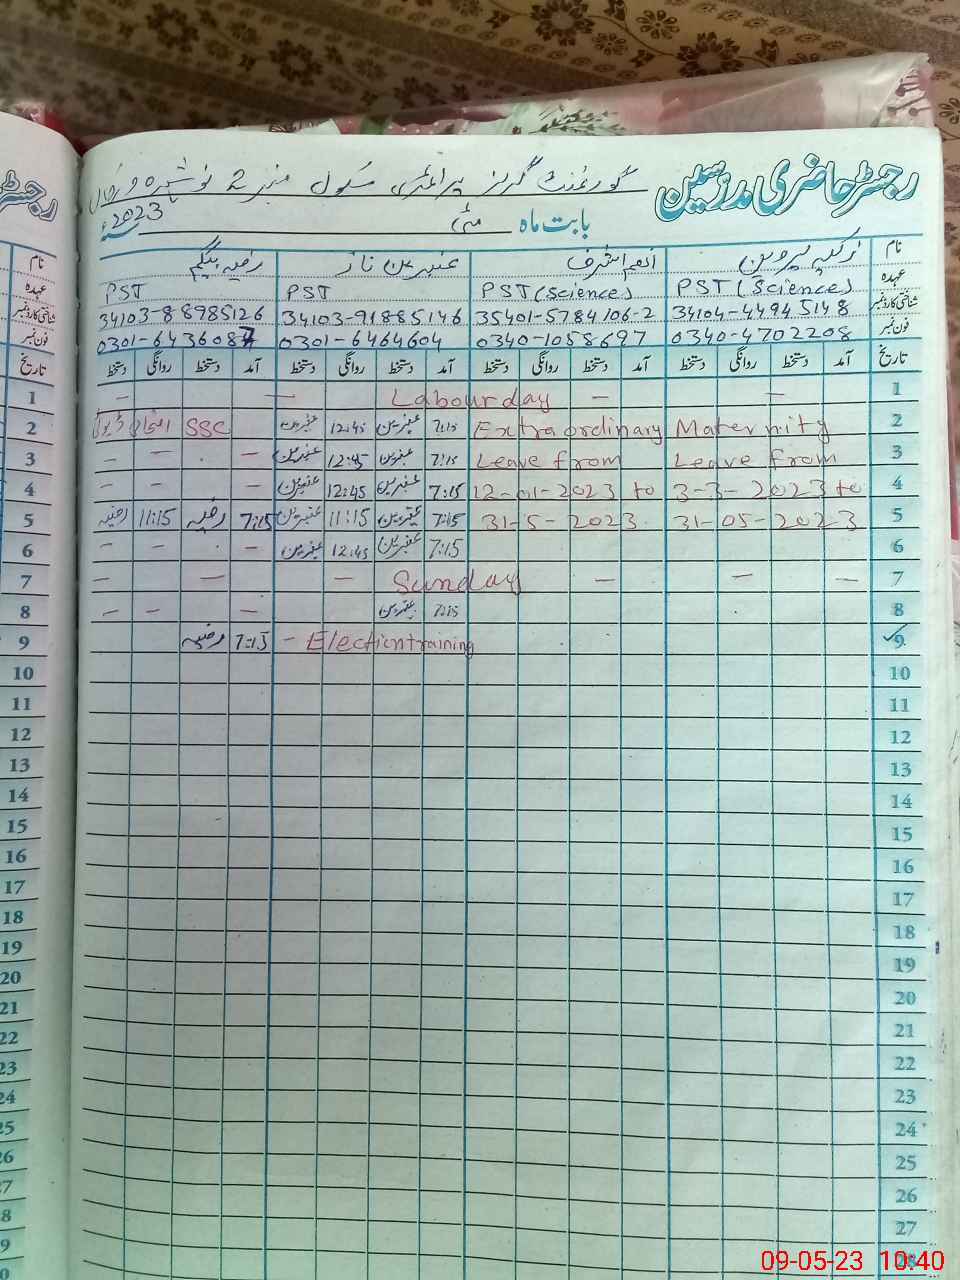 رجسٹر حاضری مدرسین گورنمنٹ گرلز پرائمری سکول نمبر 2 نوشہرہ ورکاں
بابت ماہ مئی 2023ء
نام زکیہ پروین انعم اشرف عنبرین ناز رضیہ بیگم نام
عہدہ PST (Science) PST (Science) PST PST عہدہ
شناختی کارڈ نمبر 34104-44945148 35401-5784106-2 34103-91885146 34103-88985126 شناختی کارڈ نمبر
فون نمبر 0340-4702208 0340-1058697 0301-6464604 0301-6436087 فون نمبر
تاریخ آمد دستخط روانگی دستخط آمد دستخط روانگی دستخط آمد دستخط روانگی دستخط آمد دستخط روانگی دستخط تاریخ
1 — — Labour day — — 1
2 Maternity Extraordinary 7:15 عنبرین 12:45 عنبرین SSC امتحان ڈیوٹی 2
3 Leave from Leave from 7:15 عنبرین 12:45 عنبرین - - - 3
4 3-3-2023 to 12-01-2023 to 7:15 عنبرین 12:45 عنبرین - - - 4
5 31-05-2023 31-5-2023 7:15 عنبرین 11:15 عنبرین 7:15 رضیہ 11:15 رضیہ 5
6 7:15 عنبرین 12:45 عنبرین - - - 6
7 — — — Sunday — — — 7
8 7:15 عنبرین — — — 8
9 Election training - 7:15 رضیہ 9
10 10
11 11
12 12
13 13
14 14
15 15
16 16
17 17
18 18
19 19
20 20
21 21
22 22
23 23
24 24
25 25
26 26
27 27
28 8
9
09-05-23 10:40